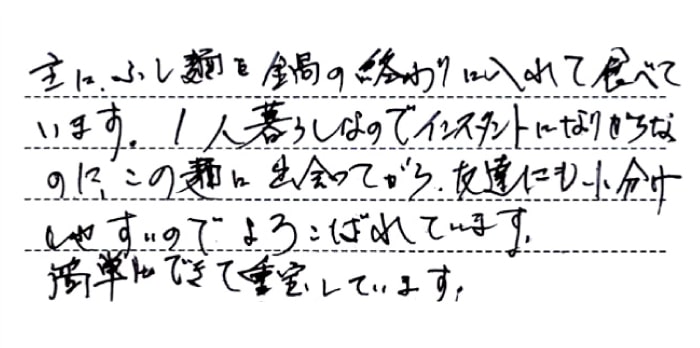 主に、ふし麺を鍋の終わりに入れて食べて
います。1人暮らしなのでインスタントになりがちな
のに、この麺に出会ってから、友達にも小分け
しやすいのでよろこばれています。
簡単にできて重宝しています。